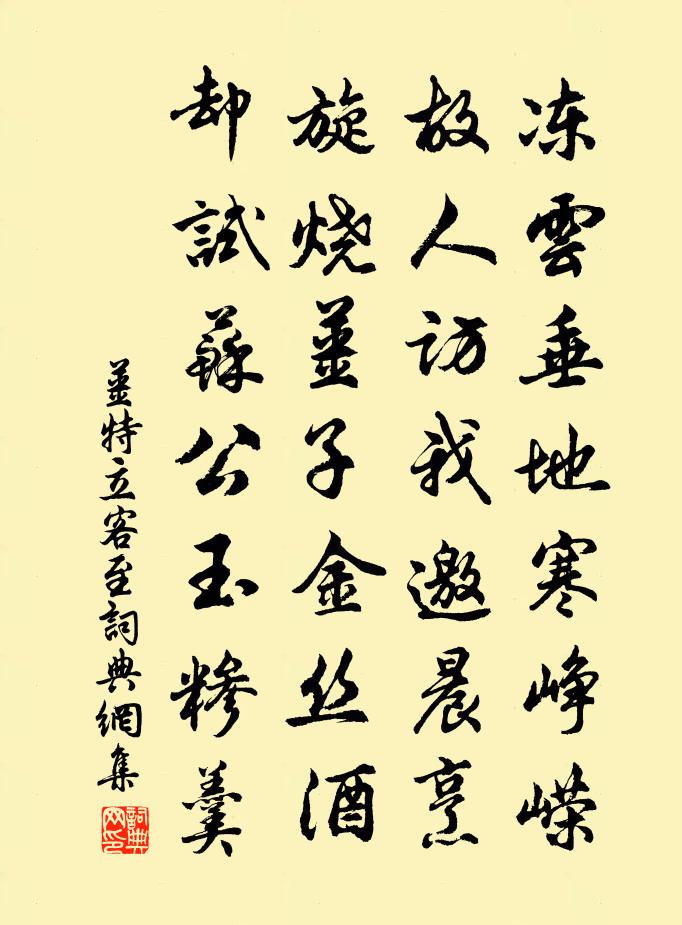 冻雲垂地寒峥嵘
故人访我邀晨烹
旋烧薑子金丝酒
却試蘇公玉糁羹
薑特立客至詞典網集
詞典网印